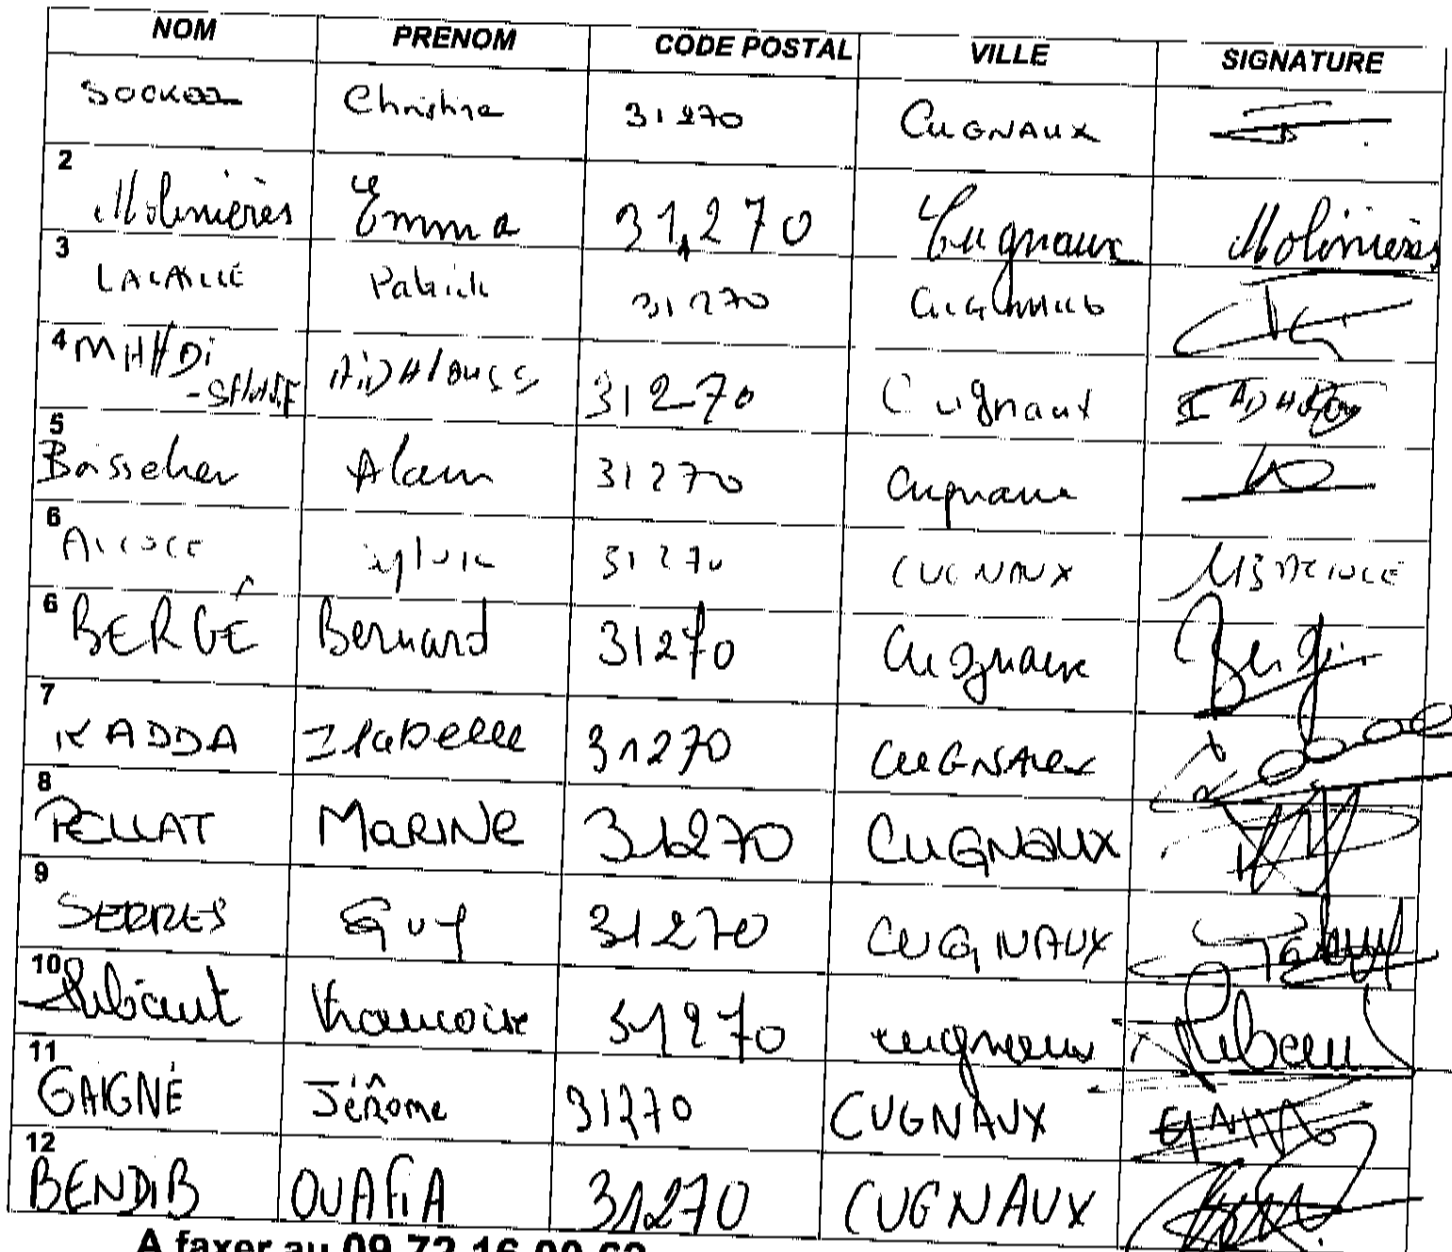 NOM PRENOM CODE POSTAL VILLE SIGNATURE
Christine 31270 CUGNAUX
2 Molinières Emma 31270 Cugnaux Molinières
3 Patrick 31270
4 31270 Cugnaux
5 Alain 31270 Cugnaux
6 Sylvie 31270 CUGNAUX
6 BERGÉ Bernard 31270 Cugnaux Bergé
7 KADDA Isabelle 31270 CUGNAUX
8 PELLAT MARINE 31270 CUGNAUX
9 SERRES Guy 31270 CUGNAUX
10 Ribaut Francoise 31270 cugnaux
11 GAIGNÉ Jérôme 31270 CUGNAUX
12 BENDIB OUAFIA 31270 CUGNAUX
A faxer au 09 72 16 00